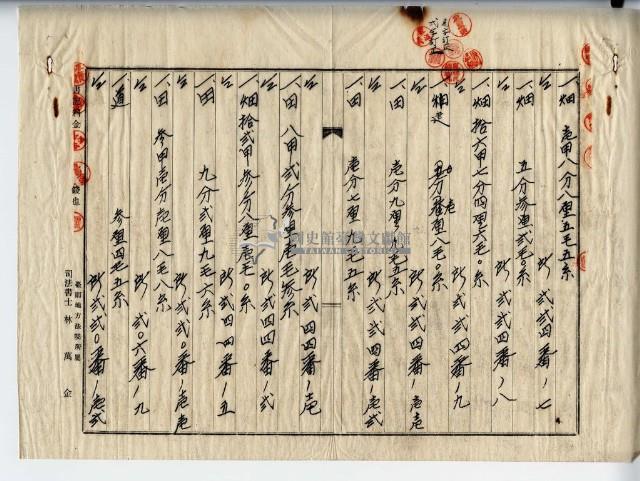 一、畑 壱甲八分八厘五毛五糸
仝 所 弐弐四番ノ七
一、畑 五分参厘弐毛〇糸
仝 所 弐弐四番ノ八
一、畑 拾六甲七分四厘六毛〇糸
仝 所 弐弐四番ノ九
一、
仝 所 弐弐四番ノ壱壱
一、田 壱分九厘〇毛五糸
仝 所 弐弐四番ノ壱弐
一、田 壱分七厘九毛五糸
仝 所 弐四四番ノ壱
一、田 八甲弐分参厘壱毛参糸
仝 所 弐四四番ノ弐
一、畑 拾弐甲参分八厘壱毛〇糸
仝 所 弐四四番ノ五
一、田 九分弐厘九毛六糸
仝 所 弐弐〇番ノ壱壱
一、田 参甲壱分壱厘八毛八糸
仝 所 弐〇六番ノ九
一、道 参厘四毛五糸
仝 所 弐弐〇番ノ壱弐
書記料金 錢也
臺南地方法院所屬
司法書士 林萬金
國史館臺灣文獻館
TAIWAN HISTORICA